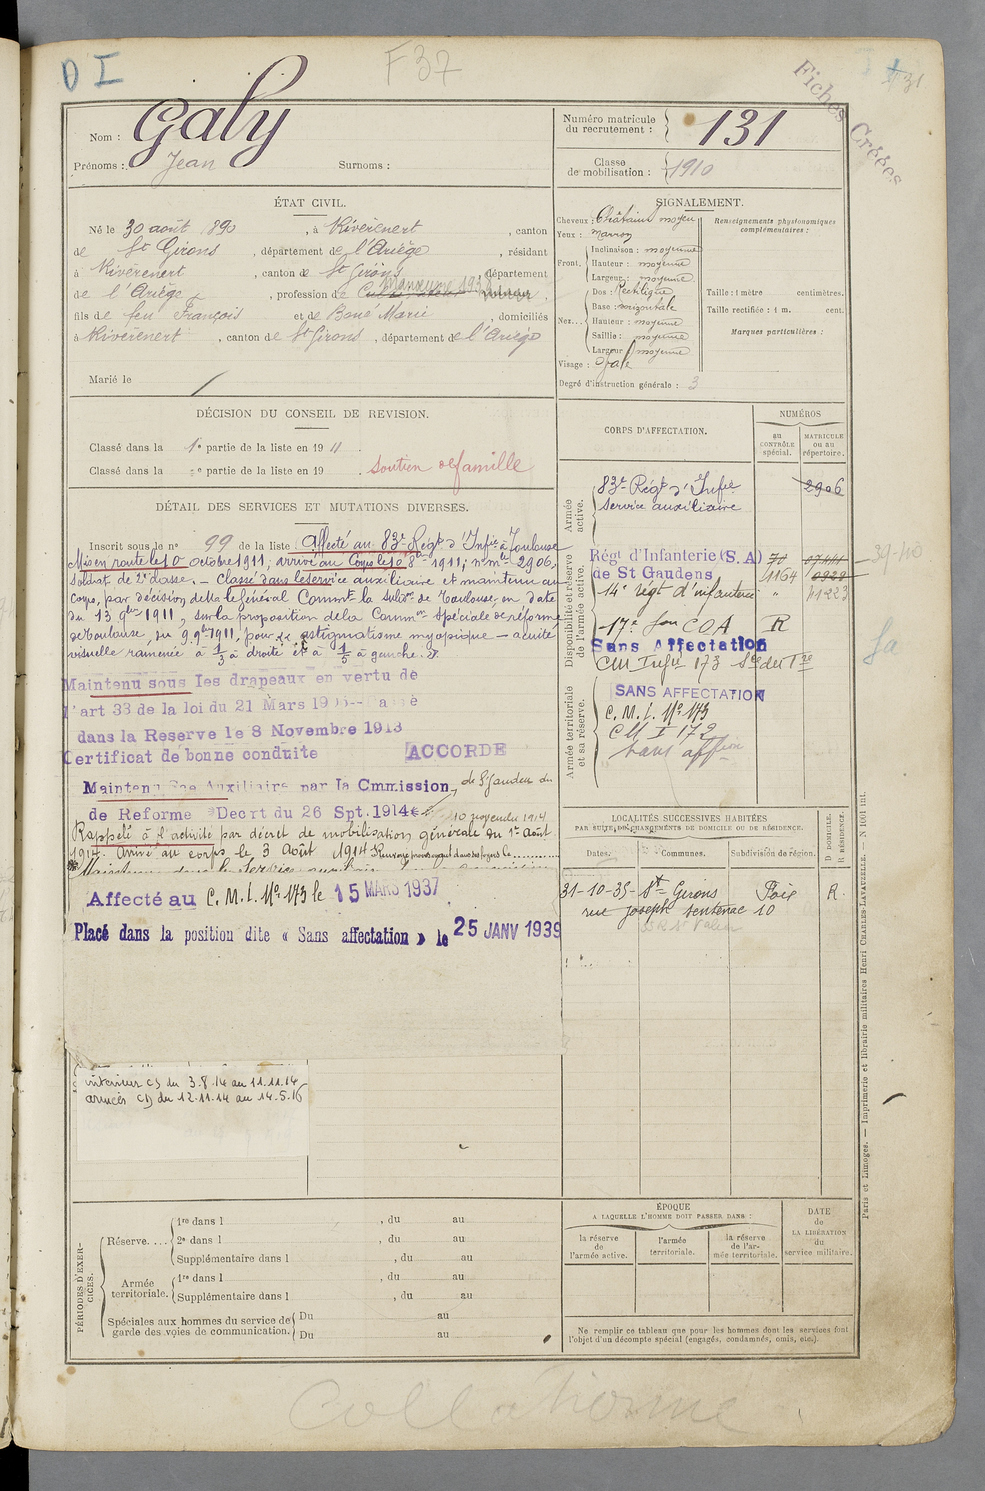 D I
F 37
Fiches Créées
131
Nom : Galy
Prénoms : Jean Surnoms :
Numéro matricule du recrutement : 131
Classe de mobilisation : 1910
ÉTAT CIVIL.
Né le 30 août 1890, à Rivèrenert, canton
de St Girons, département de l'Ariège, résidant
à Rivèrenert, canton de St Girons, département
de l'Ariège, profession de Cultivateur Manœuvre 1938
fils de feu François et de Bone Marie, domiciliés
à Rivèrenert, canton de St Girons, département de l'Ariège
Marié le
SIGNALEMENT.
Cheveux : Châtains moyen
Yeux : marron
Front. Inclinaison : moyenne
Hauteur : moyenne
Largeur : moyenne
Nez... Dos : Rectiligne
Base : horizontale
Hauteur : moyenne
Saillie : moyenne
Largeur : moyenne
Visage : Ovale
Degré d'instruction générale : 3
Renseignements physionomiques complémentaires :
Taille : 1 mètre centimètres.
Taille rectifiée : 1 m. cent.
Marques particulières :
DÉCISION DU CONSEIL DE REVISION.
Classé dans la 1e partie de la liste en 1911.
Classé dans la e partie de la liste en 19 . soutien de famille
DÉTAIL DES SERVICES ET MUTATIONS DIVERSES.
Inscrit sous le n° 99 de la liste. Affecté au 83e Régt d'Infie à Toulouse
Mis en route le 10 octobre 1911, arrivé au Corps le 10 8bre 1911; n° mle 2906,
soldat de 2e classe. – Classé dans le service auxiliaire et maintenu au
Corps, par décision de M. le Général Commt la Subdon de Toulouse, en date
du 13 9bre 1911, sur la proposition de la Common Spéciale de réforme
de Toulouse, du 9 9bre 1911, pour astigmatisme myopique – acuité
visuelle ramenée à 1/3 à droite et à 1/5 à gauche.
Maintenu sous les drapeaux en vertu de
l'art 33 de la loi du 21 Mars 1905 -- Passé
dans la Reserve le 8 Novembre 1913
Certificat de bonne conduite ACCORDE
Maintenu Sce Auxiliaire par la Cmmission de St Gaudens du
de Reforme Decrt du 26 Spt. 1914 10 novembre 1914
Rappelé à l'activité par décret de mobilisation générale du 1er Août
1914. Arrivé au corps le 3 Août 1914 Renvoyé provisoirement dans ses foyers le
Affecté au C. M. I. No 173 le 15 MARS 1937
Placé dans la position dite « Sans affectation » le 25 JANV 1939
intérieur CS du 3.8.14 au 11.11.14
armées CD du 12.11.14 au 14.5.16
CORPS D'AFFECTATION.
NUMÉROS
au CONTRÔLE spécial.
MATRICULE ou au répertoire.
Armée active.
83e Régt d'Infie 2906
Service auxiliaire
Disponibilité et réserve de l'armée active.
Régt d'Infanterie (S. A) 70 07441
de St Gaudens 1164 0929
14e régt d'infanterie " 11223
39-40
17e Son COA R
Sans Affectation
CM Infie 173
fa
Armée territoriale et sa réserve.
SANS AFFECTATION
C. M. I. No 173
CM I 173
sans affon
LOCALITÉS SUCCESSIVES HABITÉES
PAR SUITE DE CHANGEMENTS DE DOMICILE OU DE RÉSIDENCE.
Dates. Communes. Subdivision de région. D. DOMICILE. R. RÉSIDENCE.
31-10-35- St-Girons Foix R.
rue Joseph Sentenac 10
PÉRIODES D'EXERCICES.
Réserve.... 1re dans l , du au
2e dans l , du au
Supplémentaire dans l , du au
Armée territoriale. 1re dans l , du au
Supplémentaire dans l , du au
Spéciales aux hommes du service de garde des voies de communication. Du au
Du au
ÉPOQUE
A LAQUELLE L'HOMME DOIT PASSER DANS :
la réserve de l'armée active.
l'armée territoriale.
la réserve de l'armée territoriale.
DATE de LA LIBÉRATION du service militaire.
Ne remplir ce tableau que pour les hommes dont les services font
l'objet d'un décompte spécial (engagés, condamnés, omis, etc.).
Paris et Limoges. — Imprimerie et librairie militaires Henri CHARLES-LAVAUZELLE. — N 1001 int.
Collationné